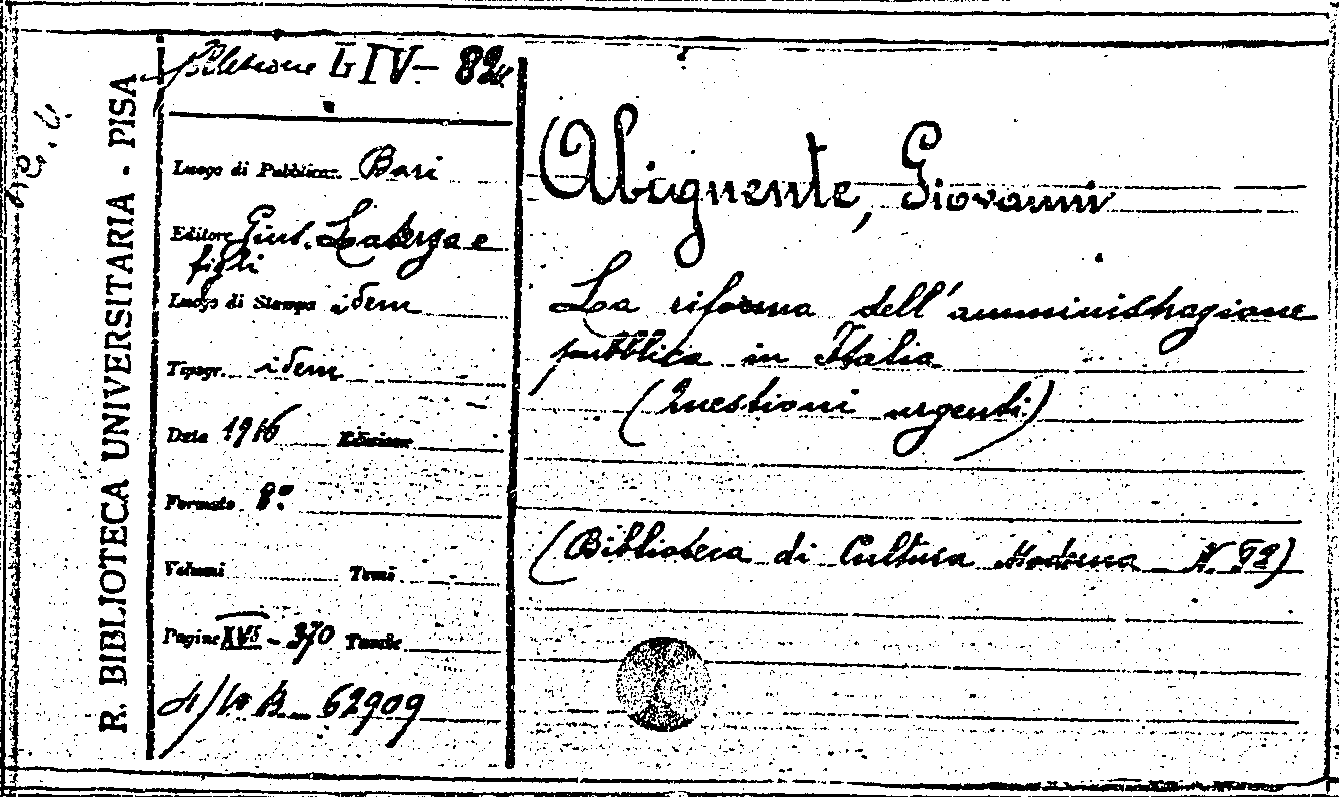 R. BIBLIOTECA UNIVERSITARIA - PISA
Collezione LIV - 82
Luogo di Pubblicaz. Bari
Editore Gius. Laterza e
figli
Luogo di Stampa idem
Tipogr. idem
Data 1916 Edizione
Formato 8º
Volumi Tomi
Pagine XVI - 370 Tavole
62909
Abignente, Giovanni
La riforma dell'amministrazione
pubblica in Italia
(Questioni urgenti)
(Biblioteca di Cultura Moderna N. 82)